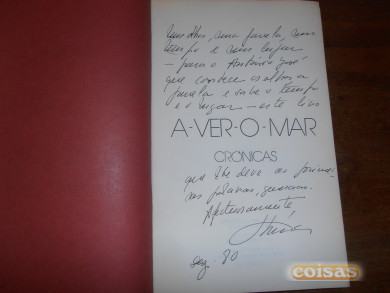 uns olhos, uma janela, um
tempo e um lugar
— para o António José
que conhece os olhos, a
janela e sabe o tempo
e o lugar — este livro
A-VER-O-MAR
CRÓNICAS
que lhe deve as primei-
ras palavras,
Afectuosamente,
dez. 80
coisas